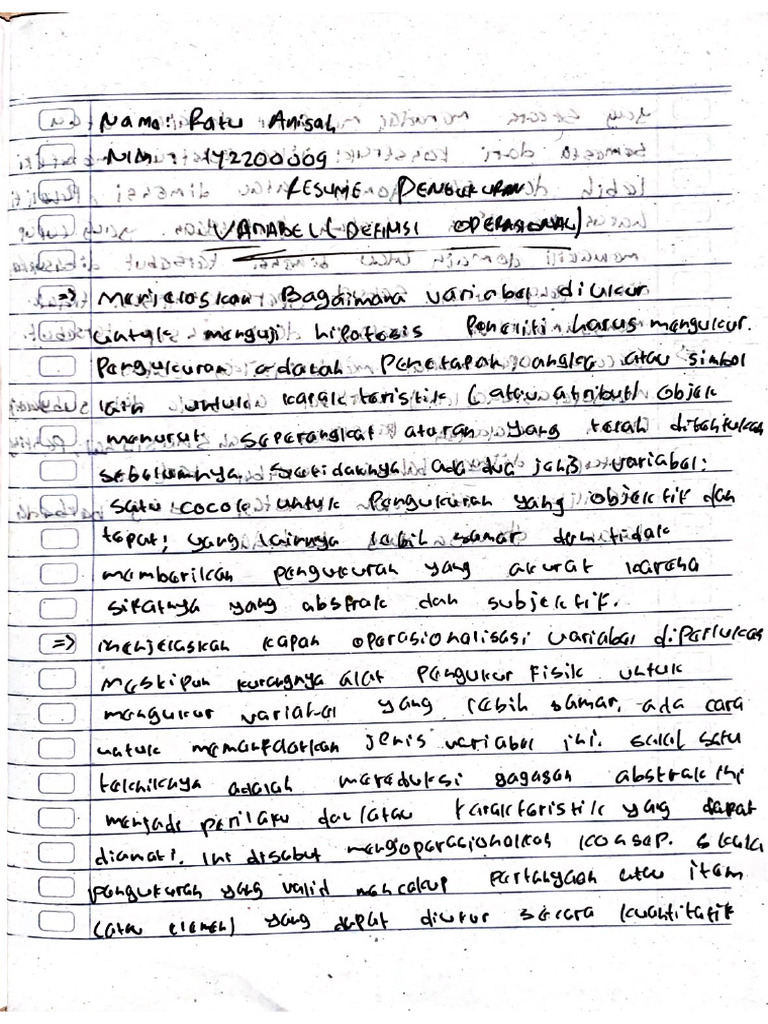 Nama: Ratu Anisah
NIM: 142200009
RESUME PENGUKURAN
VARIABEL (DEFINISI OPERASIONAL)
=> Menjelaskan Bagaimana variabel diukur
untuk menguji hipotesis Peneliti harus mengukur.
Pengukuran adalah Penetapan angka atau simbol
lain untuk karakteristik (atau atribut) objek
menurut seperangkat aturan yang telah ditentukan
sebelumnya. Setidaknya ada dua jenis variabel:
satu cocok untuk Pengukuran yang objektif dan
tepat; yang lainnya lebih samar dan tidak
memberikan pengukuran yang akurat karena
sifatnya yang abstrak dan subjektif.
=> menjelaskan kapan operasionalisasi variabel diperlukan
Meskipun kurangnya alat Pengukur Fisik untuk
mengukur variabel yang lebih samar, ada cara
untuk memanfaatkan jenis variabel ini. salah satu
tekniknya adalah mereduksi gagasan abstrak ini
menjadi perilaku dan/atau karakteristik yang dapat
diamati. Ini disebut mengoperasionalkan konsep. skala
pengukuran yang valid mencakup pertanyaan atau item
(atau elemen) yang dapat diukur secara kuantitatif